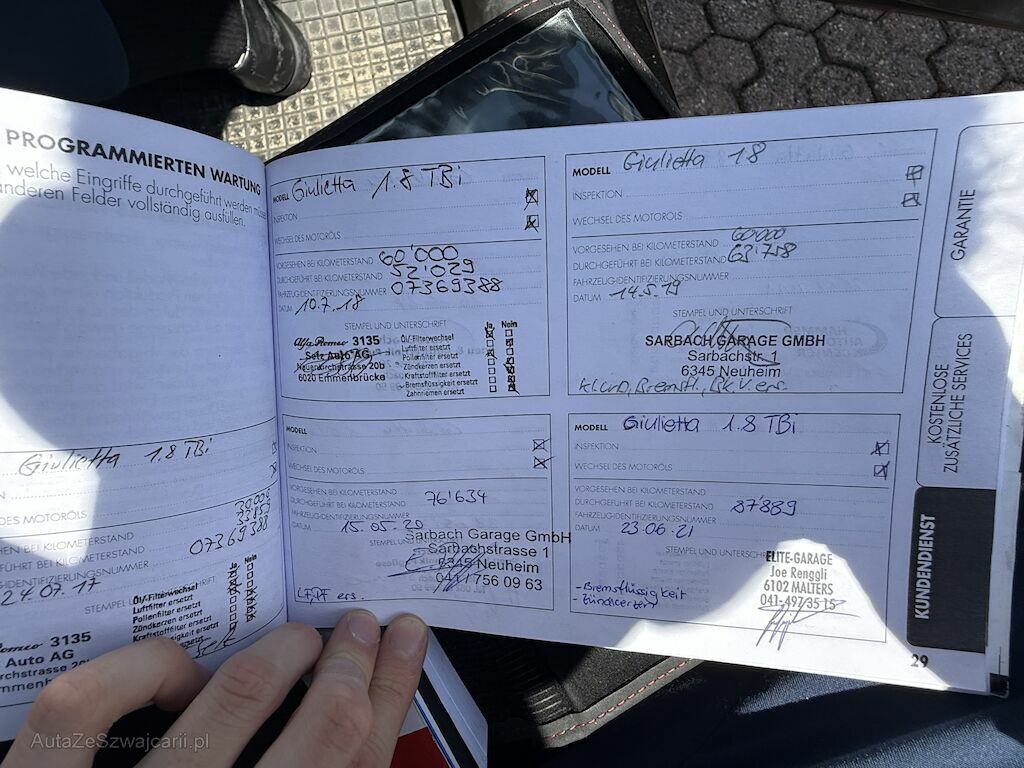 PROGRAMMIERTEN WARTUNG
welche Eingriffe durchgeführt werden müssen
anderen Felder vollständig ausfüllen.
Giulietta 1.8 TBi
DES MOTORÖLS
30.000
BEI KILOMETERSTAND
BEI KILOMETERSTAND
07369388
24.07.17
STEMPEL UNTERSCHRIFT
Öl-/Filterwechsel
Luftfilter ersetzt
Pollenfilter ersetzt
Zündkerzen ersetzt
Kraftstofffilter ersetzt
Zahnriemen ersetzt
3135
Auto AG
MODELL Giulietta 1.8 TBi
INSPEKTION
WECHSEL DES MOTORÖLS
VORGESEHEN BEI KILOMETERSTAND 60'000
DURCHGEFÜHRT BEI KILOMETERSTAND 52'029
FAHRZEUGIDENTIFIZIERUNGSNUMMER 07369388
DATUM 10.7.18
STEMPEL UND UNTERSCHRIFT
Alfa Romeo 3135
Auto AG
Neuenkirchstrasse 20b
6020 Emmenbrücke
Ja Nein
Öl-/Filterwechsel
Luftfilter ersetzt
Pollenfilter ersetzt
Zündkerzen ersetzt
Kraftstofffilter ersetzt
Bremsflüssigkeit ersetzt
Zahnriemen ersetzt
MODELL Giulietta 18
INSPEKTION
WECHSEL DES MOTORÖLS
VORGESEHEN BEI KILOMETERSTAND 60'000
DURCHGEFÜHRT BEI KILOMETERSTAND 63'758
FAHRZEUGIDENTIFIZIERUNGSNUMMER
DATUM 14.5.19
STEMPEL UND UNTERSCHRIFT
SARBACH GARAGE GMBH
Sarbachstr. 1
6345 Neuheim
MODELL
INSPEKTION
WECHSEL DES MOTORÖLS
VORGESEHEN BEI KILOMETERSTAND
DURCHGEFÜHRT BEI KILOMETERSTAND 76'634
FAHRZEUGIDENTIFIZIERUNGSNUMMER
DATUM 15.05.20
Sarbach Garage GmbH
Sarbachstrasse 1
6345 Neuheim
041 / 756 09 63
MODELL Giulietta 1.8 TBi
INSPEKTION
WECHSEL DES MOTORÖLS
VORGESEHEN BEI KILOMETERSTAND
DURCHGEFÜHRT BEI KILOMETERSTAND 87'889
FAHRZEUGIDENTIFIZIERUNGSNUMMER
DATUM 23.06.21
STEMPEL UND UNTERSCHRIFT
ELITE-GARAGE
Joe Renggli
6102 MALTERS
041-497 35 15
- Bremsflüssigkeit
- Zündkerzen
GARANTIE
KOSTENLOSE
ZUSÄTZLICHE SERVICES
KUNDENDIENST
29
AutaZeSzwajcarii.pl